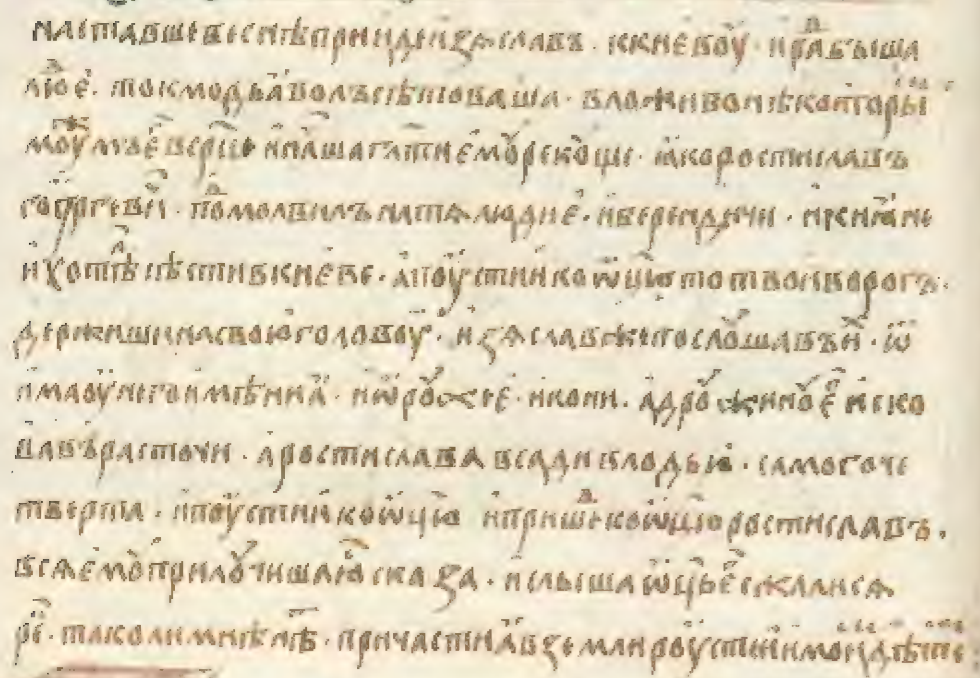 наставшевеснѣприидеизѧславъ · ккиевоу · ирⷣабыша
люⷣе · токмодьꙗволъспѣтоваша · вложивомѣкоторы
моужьевсерⷣце ипашагатиемоурскоуще · ꙗкоростиславъ
гюргевиⷱ · поⷣмолвилънатѧлюдие · иберендичи · икиꙗне
ихотѣлъсѣстивкиевѣ · апоустииикоѡц҃ютотвоиворогъ ·
держишинасвоюголовоу · изѧславжетогослоушавъи · ѿ
имаоунегоимѣниꙗ · иѡроужье · икони · адроужиноуеⷢ҇иско
вавърасточи · аростислававсадивлодью · самогоче
тверта · ипоустииикоѡц҃ю иприⷣшекоѡц҃юростиславъ ·
всѧемоуприлоучишаꙗсꙗсказа · ислышаѡц҃ьеⷢ҇сжалисѧ
реⷱ · таколимнѣнѣⷭ · причастиꙗвземлироустииимоимъдѣте